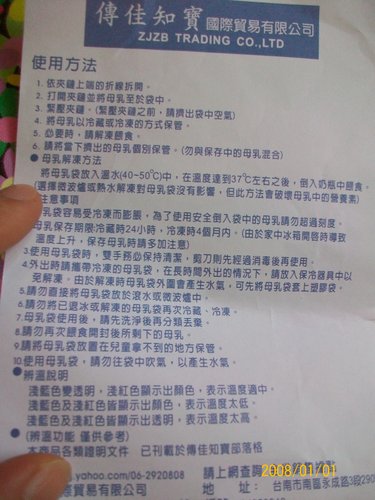 傳佳知寶 國際貿易有限公司
ZJZB TRADING CO.,LTD
使用方法
1. 依夾鏈上端的折線拆開。
2. 打開夾鏈並將母乳至於袋中。
3. 緊壓夾鏈。(緊壓夾鏈之前，請擠出袋中空氣)
4. 將母乳以冷藏或冷凍的方式保管。
5. 必要時，請解凍餵食。
6. 請將當下擠出的母乳個別保管。(勿與保存中的母乳混合)
● 母乳解凍方法
將母乳袋放入溫水(40~50℃)中，在溫度達到37℃左右之後，倒入奶瓶中餵食。
(選擇微波爐或熱水解凍對母乳袋沒有影響，但此方法會破壞母乳中的營養素)
注意事項
乳袋容易受冷凍而膨脹，為了使用安全倒入袋中的母乳請勿超過刻度。
母乳保存期限冷藏時24小時，冷凍時4個月內。(由於家中冰箱開啓時導致
溫度上升，保存母乳時請多加注意)
3.使用母乳袋時，雙手務必保持清潔，剪刀則先經過消毒後再使用。
4.外出時請攜帶冷凍的母乳袋，在長時間外出的情況下，請放入保冷器具中以
免解凍。由於解凍時母乳袋外圍會產生水氣，可先將母乳袋套上塑膠袋。
5.請勿直接將母乳袋放於滾水或微波爐中。
6.請勿將已退冰或解凍的母乳袋再次冷藏、冷凍。
7.母乳袋使用後，請先洗淨後再分類丟棄。
8.請勿再次餵食開封後所剩下的母乳。
9.請將母乳袋放置在兒童拿不到的地方保管。
10.使用母乳袋，請勿往袋中吹氣，以產生水氣。
● 辨溫說明
淺藍色變透明，淺紅色顯示出顏色，表示溫度適中。
淺藍色及淺紅色皆顯示出顏色，表示溫度太低。
淺藍色及淺紅色皆顯示出顏色，表示溫度太高。
● (辨溫功能 僅供參考)
本商品各類證明文件 已刊載於傳佳知寶部落格
yahoo.com/06-2920808 請上網查詢
國際貿易有限公司 地 址：台南市南區永成路3段290
2008/01/01